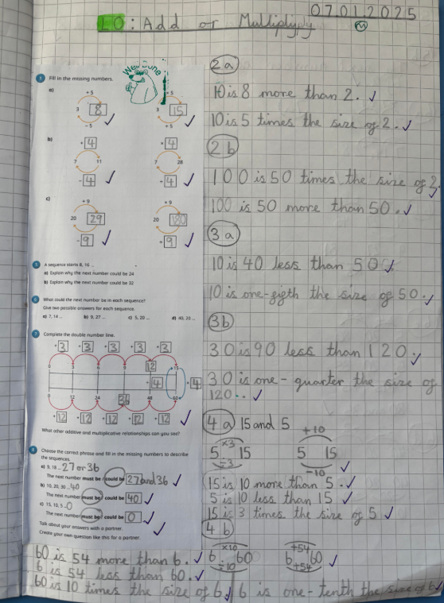 07.01.2025
LO: Add or Multiplyply
Well Done
1 Fill in the missing numbers.
a)
+5
3 8
-5
×5
3 15
÷5
b)
+4
7 11
-4
×4
7 28
÷4
c)
+9
20 29
-9
×9
20 180
÷9
5 A sequence starts 8, 16 ...
a) Explain why the next number could be 24
b) Explain why the next number could be 32
6 What could the next number be in each sequence?
Give two possible answers for each sequence.
a) 7, 14 ... b) 9, 27 ... c) 5, 20 ... d) 40, 10 ...
7 Complete the double number line.
+3 +3 +3 +3 +3
12
×4 ÷4
+12 +12 +12 +12 +12
What other additive and multiplicative relationships can you see?
8 Choose the correct phrase and fill in the missing numbers to describe the sequences.
a) 9, 18 ... 27 or 36
The next number must be / could be 27 and 36
b) 10, 20, 30 ... 40
The next number must be / could be 40
c) 15, 10, 5 ... 0
The next number must be / could be 0
Talk about your answers with a partner.
Create your own question like this for a partner.
2a
10 is 8 more than 2.
10 is 5 times the size of 2.
2b
100 is 50 times the size of 2.
100 is 50 more than 50.
3a
10 is 40 less than 50
10 is one-eigth the size of 50.
3b
30 is 90 less than 120.
30 is one-quarter the size of
120.
4a 15 and 5
×3
5 15
÷3
+10
5 15
-10
15 is 10 more than 5.
5 is 10 less than 15
15 is 3 times the size of 5
4b
×10
6 60
÷10
+54
6 60
÷54
60 is 54 more than 6.
6 is 54 less than 60.
60 is 10 times the size of 6. 6 is one-tenth the size of 60